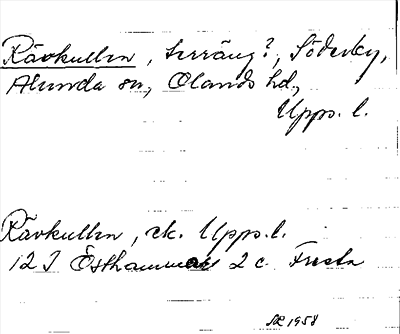 Rävkullen, terräng?, Söderby,
Alunda sn, Olands hd,
Upps. l.
Rävkullen, ek. Upps. l.
12 I Östhammar 2 c
1958